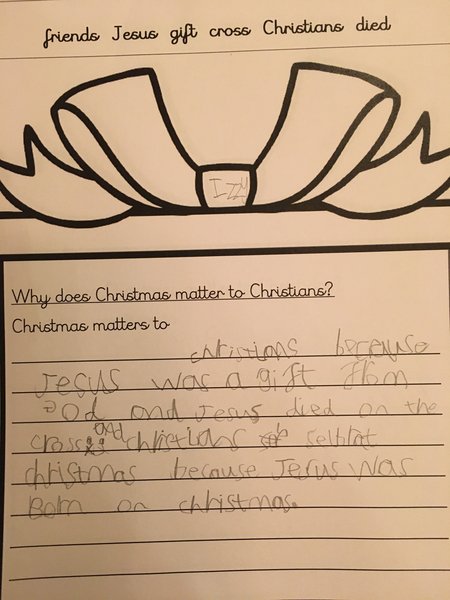 friends Jesus gift cross Christians died
IZZY
Why does Christmas matter to Christians?
Christmas matters to
christians because
Jesus was a gift from
God and Jesus died on the
cross and christians selbrat
christmas because Jesus was
Born on christmas.